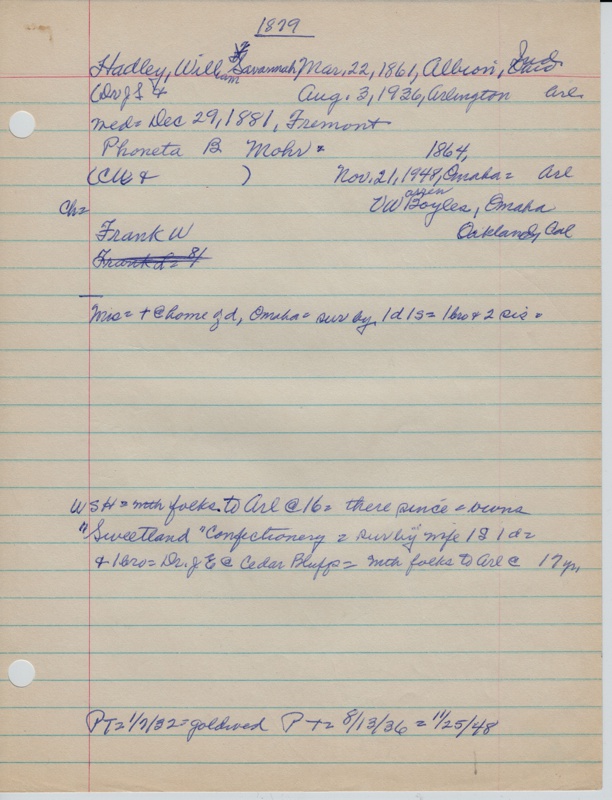 1879
Hadley, William Savannah, Mar. 22, 1861, Albion, Ind
(Dr J S & Aug. 3, 1936, Arlington Arl
med= Dec 29, 1881, Fremont
Phoneta B Mohr = 1864,
(CW & ) Nov. 21, 1948, Omaha = Arl
Ch= VW Boyles, Omaha
Frank W Oakland, Cal
Frank d = 81
Mrs = + @ home of d, Omaha = sur by 1d 1s = 1 bro & 2 sis =
WSH = mth folks to Arl @ 16 = there since = owns
"Sweetland" Confectionery = sur by wife 1S 1d =
& 1 bro = Dr. J E @ Cedar Bluffs = mth folks to Arl @ 17 yrs
PT = 1/7/32 = goldwed PT = 8/13/36 = 11/25/48